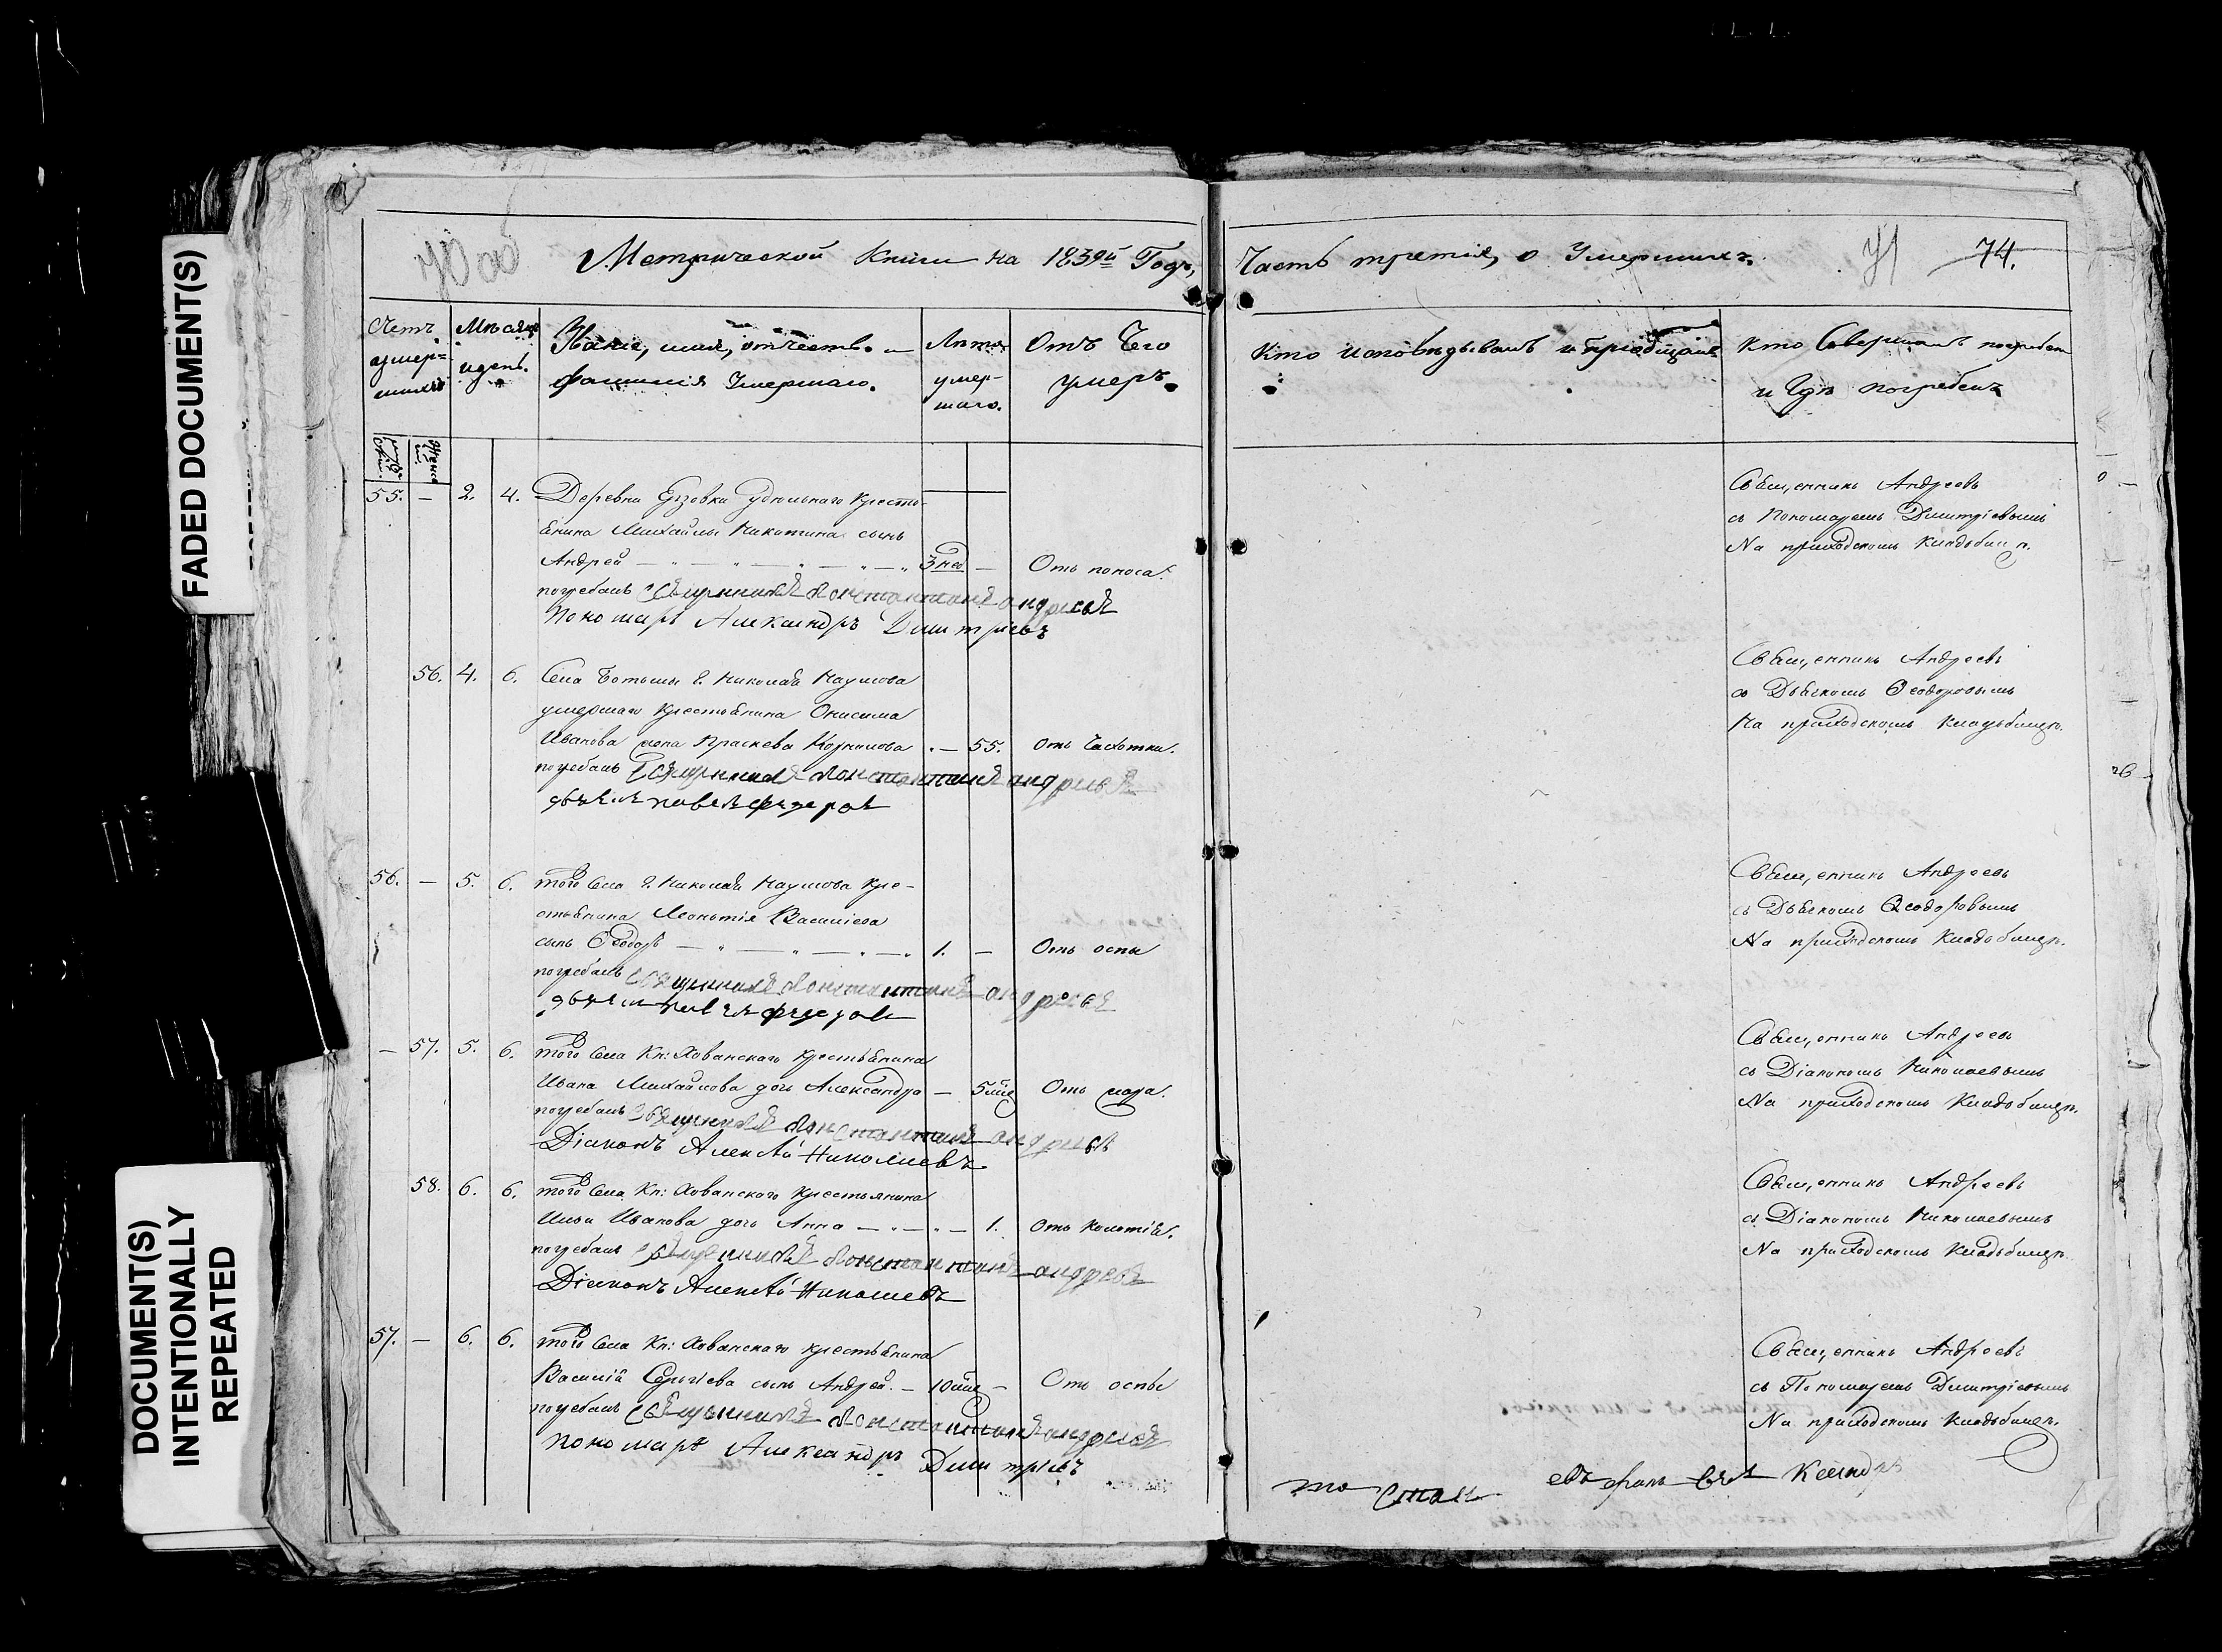 FADED DOCUMENT(S)
DOCUMENT(S)
INTENTIONALLY
REPEATED
Метрической Книги на 1839й Годъ,
Часть третія, о Умершихъ.
74.
Счетъ умер=шихъ
Мѣсяцъ и день.
Званіе, имя, отчество и фамилія Умершаго.
Лѣта умер-шаго.
Отъ Чего умеръ.
Кто исповѣдывалъ и пріобщалъ
Кто Совершалъ погребен
и Гдѣ погребенъ
55. — 2. 4. Деревни удѣльнаго Кресть-
янина Михайлы Никитина сынъ
Андрей 3 нед — Отъ поноса.
погребалъ священникъ Константинъ андреевъ
Пономарь Александръ Дмитріевъ
Священникъ Андреевъ
съ Пономаремъ Димитріевымъ
На приходскомъ Кладбищѣ.
56. 4. 6. Села Ботьмы Г. Николая Наумова
умершаго крестьянина Онисима
Иванова жена Праскева Корнилова — 55. Отъ Чахотки.
погребалъ Священникъ Константинъ андреевъ
дьячекъ павелъ федоровъ
Священникъ Андреевъ
съ Дьячкомъ Ѳеодоровымъ
На приходскомъ кладьбищѣ.
56. — 5. 6. того Села Г. Николая Наумова Кре-
стьянина Леонтія Василіева
сынъ Ѳеодоръ 1. — Отъ оспы
погребалъ Священникъ Константинъ андреевъ
дьячекъ павелъ федоровъ
Священникъ Андреевъ
съ Дьячкомъ Ѳеодоровымъ
На приходскомъ Кладьбищѣ.
— 57. 5. 6. того Села Кн: Хованскаго крестьянина
Ивана Михайлова дочь Александра — 5 мѣ Отъ
погребалъ Священникъ Константинъ андреевъ
Діаконъ Алексѣй Николаевъ
Священникъ Андреевъ
съ Діакономъ Николаевымъ
На приходскомъ Кладьбищѣ.
58. 6. 6. того Села Кн: Хованскаго Крестьянина
Ильи Иванова дочь Анна — 1. Отъ колотія.
погребалъ Священникъ Константинъ андреевъ
Діаконъ Алексѣй Николаевъ
Священникъ Андреевъ
съ Діакономъ Николаевымъ
На приходскомъ Кладьбищѣ.
57. — 6. 6. того Села Кн: Хованскаго крестьянина
Василія Сергѣева сынъ Андрей. — 10 мѣ — Отъ оспы
погребалъ Священникъ Константинъ андреевъ
пономарь Александръ Дмитріевъ
Священникъ Андреевъ
съ Пономаремъ Димитріевымъ
На приходскомъ Кладьбищѣ.